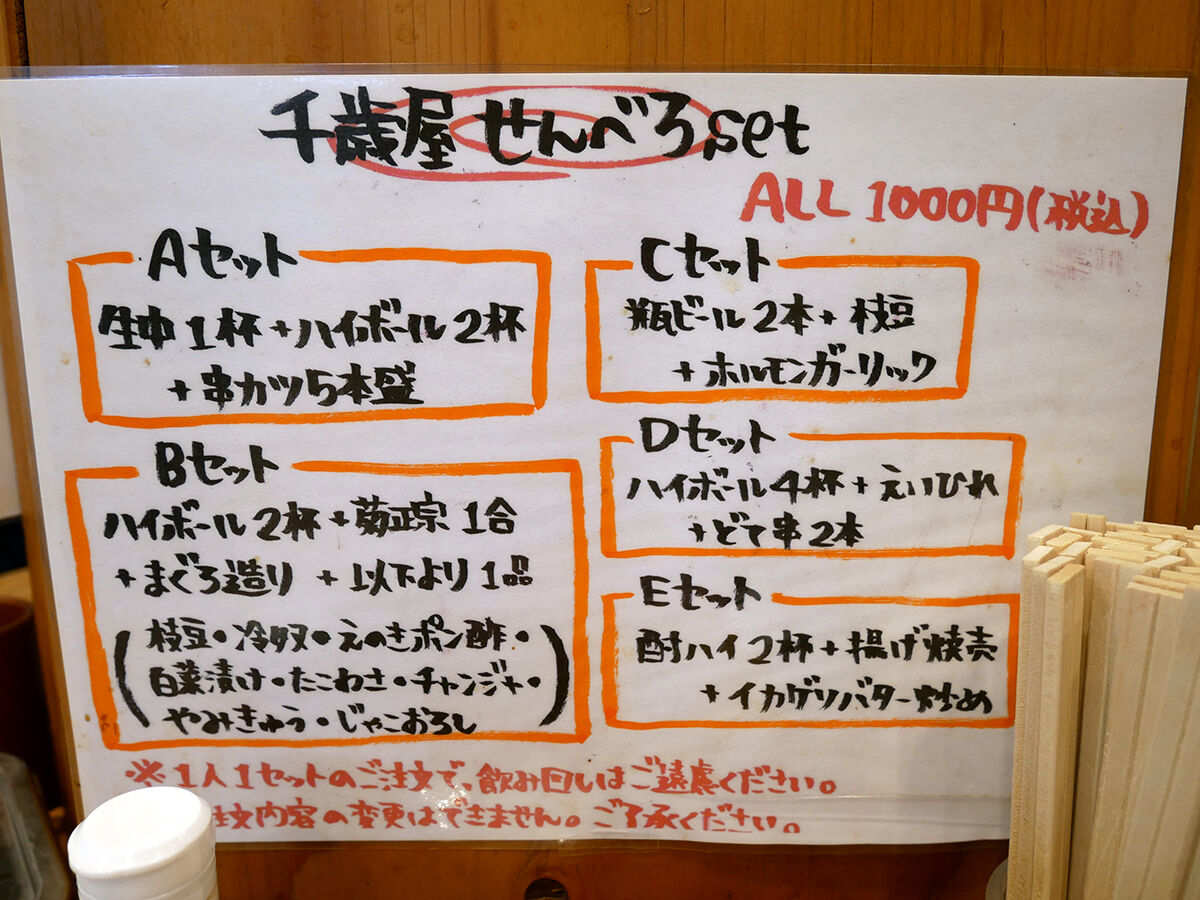 千歳屋 せんべろset
ALL 1000円(税込)
Aセット
生中1杯+ハイボール2杯
+串カツ5本盛
Bセット
ハイボール2杯+菊正宗1合
+まぐろ造り +以下より1品
(枝豆・冷奴・えのきポン酢・
白菜漬け・たこわさ・チャンジャ・
やみきゅう・じゃこおろし)
Cセット
瓶ビール2本+枝豆
+ホルモンガーリック
Dセット
ハイボール4杯+えいひれ
+どて串2本
Eセット
酎ハイ2杯+揚げ焼売
+イカゲソバター炒め
※1人1セットのご注文で、飲み回しはご遠慮ください。
注文内容の変更はできません。ご了承ください。